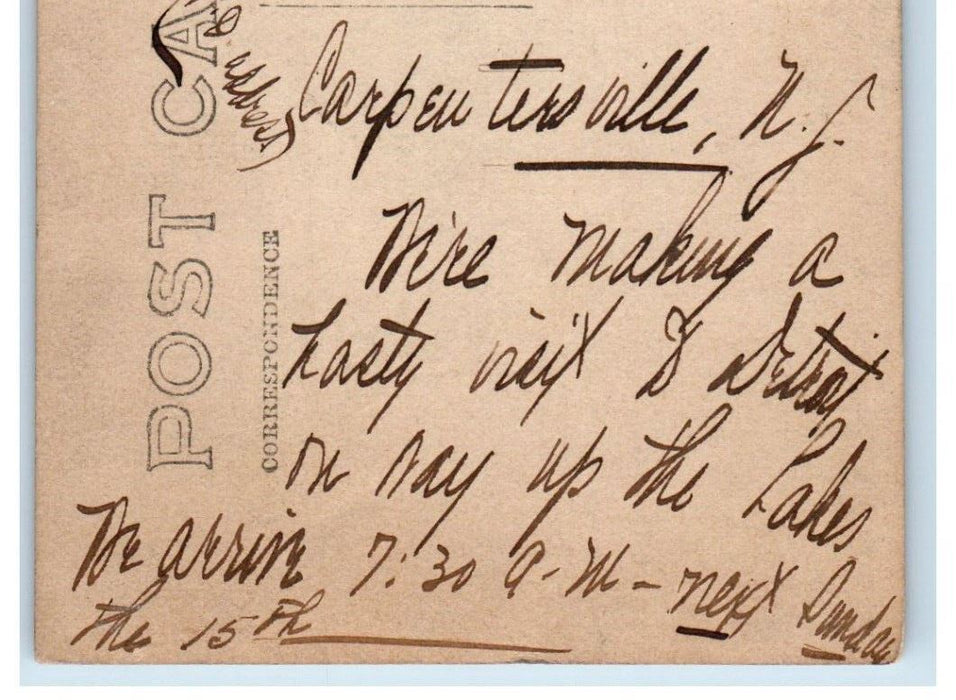 POST CA
CORRESPONDENCE
address
Carpentersville, N.J.
We're making a
hasty visit to Detroit
on way up the Lakes
We arrive 7:30 A-M- next Sunday
the 15th